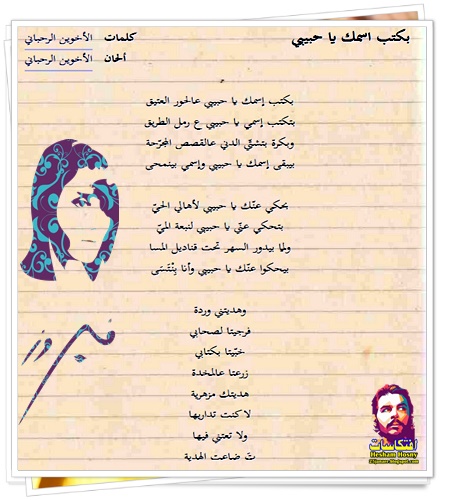 بكتب اسمك يا حبيبي
كلمات الأخوين الرحباني
ألحان الأخوين الرحباني
بكتب إسمك يا حبيبي عالحور العتيق
بتكتب إسمي يا حبيبي ع رمل الطريق
وبكرة بتشتّي الدني عالقصص المجرّحة
بيبقى إسمك يا حبيبي وإسمي بينمحى
بحكي عنّك يا حبيبي لأهالي الحيّ
بتحكي عنّي يا حبيبي لنبعة الميّ
ولما بيدور السهر تحت قناديل المسا
بيحكوا عنّك يا حبيبي وأنا بِنْتَسَى
وهديتني وردة
فرجيتا لصحابي
خبّيتا بكتابي
زرعتا عالمخدة
هديتك مزهرية
لا كنت تداريها
ولا تعتني فيها
تَ ضاعت الهدية
فيروز
افتكاسات
Hesham Hosny
25january.blogspot.com